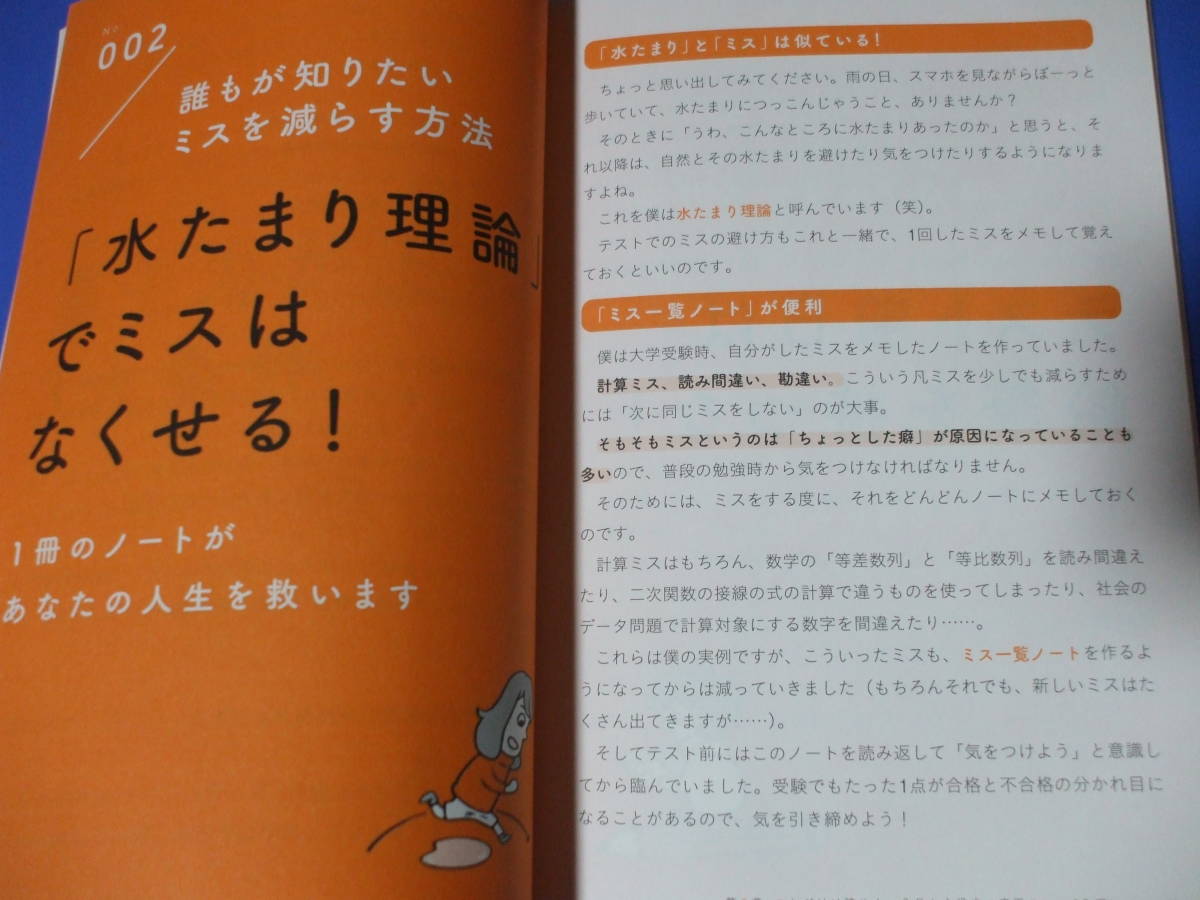 No
002
誰もが知りたい
ミスを減らす方法
「水たまり理論」
でミスは
なくせる!
1冊のノートが
あなたの人生を救います
「水たまり」と「ミス」は似ている!
ちょっと思い出してみてください。雨の日、スマホを見ながらぼーっと
歩いていて、水たまりにつっこんじゃうこと、ありませんか?
そのときに「うわ、こんなところに水たまりあったのか」と思うと、そ
れ以降は、自然とその水たまりを避けたり気をつけたりするようになりま
すよね。
これを僕は水たまり理論と呼んでいます(笑)。
テストでのミスの避け方もこれと一緒で、1回したミスをメモして覚え
ておくといいのです。
「ミス一覧ノート」が便利
僕は大学受験時、自分がしたミスをメモしたノートを作っていました。
計算ミス、読み間違い、勘違い。こういう凡ミスを少しでも減らすため
には「次に同じミスをしない」のが大事。
そもそもミスというのは「ちょっとした癖」が原因になっていることも
多いので、普段の勉強時から気をつけなければなりません。
そのためには、ミスをする度に、それをどんどんノートにメモしておく
のです。
計算ミスはもちろん、数学の「等差数列」と「等比数列」を読み間違え
たり、二次関数の接線の式の計算で違うものを使ってしまったり、社会の
データ問題で計算対象にする数字を間違えたり……。
これらは僕の実例ですが、こういったミスも、ミス一覧ノートを作るよ
うになってからは減っていきました(もちろんそれでも、新しいミスはた
くさん出てきますが……)。
そしてテスト前にはこのノートを読み返して「気をつけよう」と意識し
てから臨んでいました。受験でもたった1点が合格と不合格の分かれ目に
なることがあるので、気を引き締めよう!